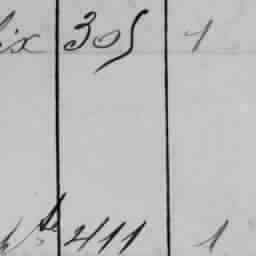 ix 305 1
411 1